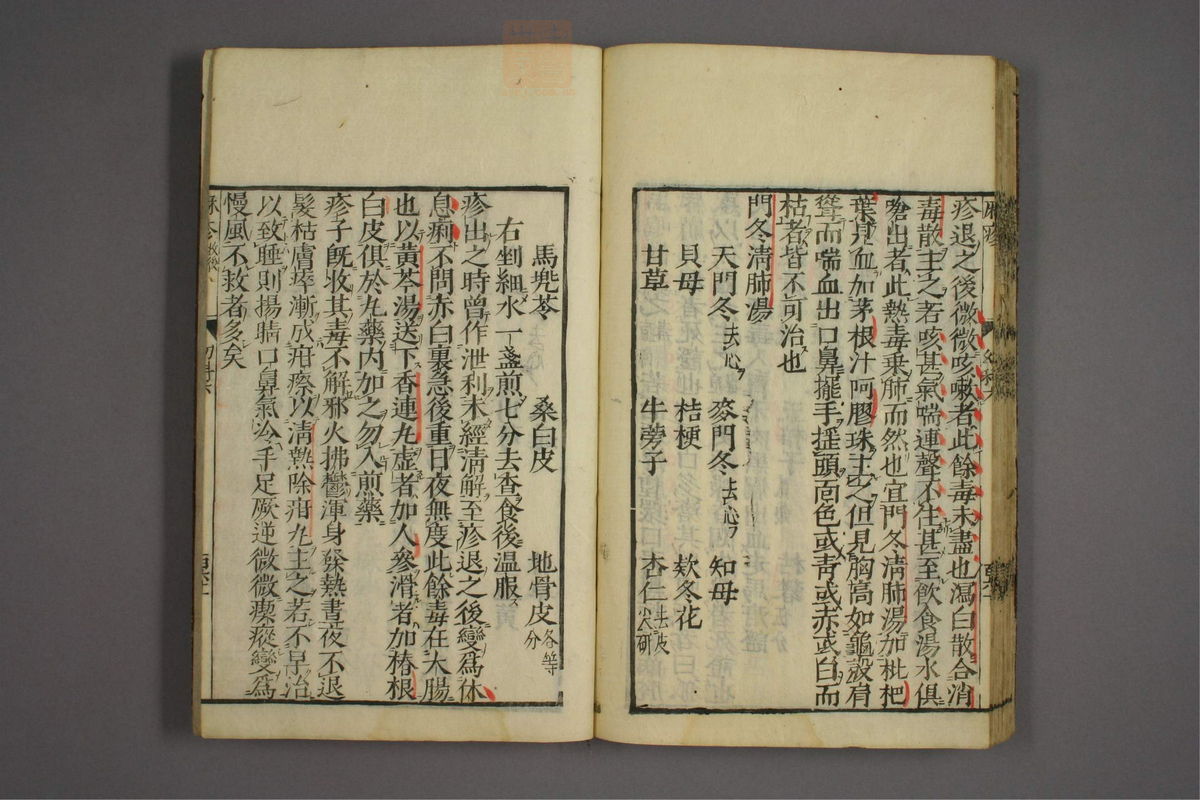 疹退之後微微咳嗽者此餘毒未盡也瀉白散合消
毒散主之若咳甚氣喘連聲不住甚至飲食湯水俱
嗆出者此熱毒乗肺而然也宜門冬清肺湯加枇杷
葉見血加茅根汁呵膠珠主之但見胸高如龜殼肩
聳而喘血出口鼻擺手揺頭面色或青或赤或白而
枯者皆不可治也
門冬清肺湯
天門冬去心 麥門冬去心 知母
貝母 桔梗 欵冬花
甘草 牛蒡子 杏仁去皮尖研
馬兠苓 桑白皮 地骨皮各等分
右剉細水一盞煎七分去査食後温服
疹出之時曽作泄利未經清解至疹退之後變爲休
息痢不問赤白裏急後重日夜無度此餘毒在大腸
也以黄芩湯送下香連丸虚者加人參滑者加椿根
白皮俱於丸藥内加之勿入煎藥
疹子既收其毒不解邪火拂鬱渾身發熱晝夜不退
髮枯膚瘁漸成疳瘵以清熱除疳丸主之若不早治
以致睡則揚睛口鼻氣冷手足厥逆微微瘈瘲變爲
慢風不救者多矣